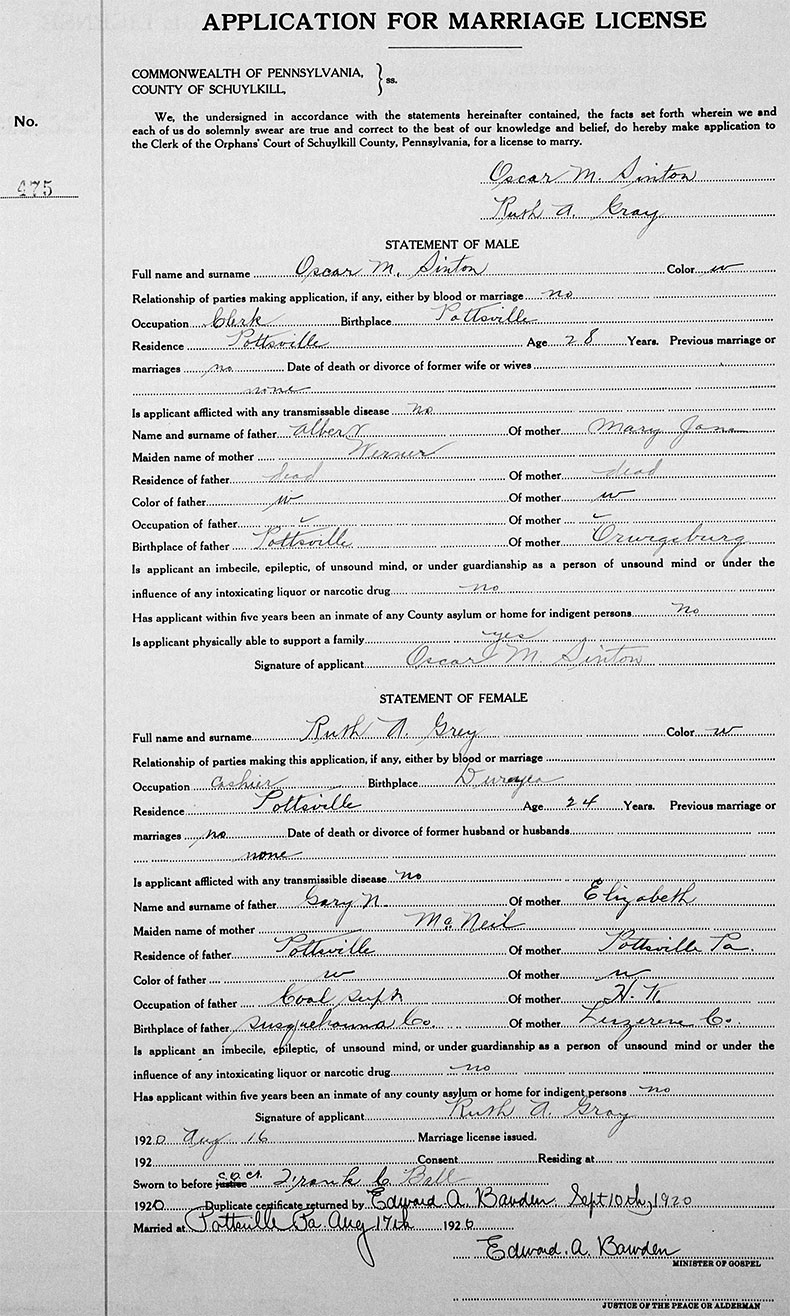 APPLICATION FOR MARRIAGE LICENSE
COMMONWEALTH OF PENNSYLVANIA,
COUNTY OF SCHUYLKILL, } ss.
No.
475
We, the undersigned in accordance with the statements hereinafter contained, the facts set forth wherein we and
each of us do solemnly swear are true and correct to the best of our knowledge and belief, do hereby make application to
the Clerk of the Orphans' Court of Schuylkill County, Pennsylvania, for a license to marry.
Oscar M. Sinton
Ruth A. Gray
STATEMENT OF MALE
Full name and surname Oscar M. Sinton Color w
Relationship of parties making application, if any, either by blood or marriage no
Occupation Clerk Birthplace Pottsville
Residence Pottsville Age 28 Years. Previous marriage or
marriages no Date of death or divorce of former wife or wives
none
Is applicant afflicted with any transmissable disease no
Name and surname of father Albert Of mother Mary Jane
Maiden name of mother Werner
Residence of father dead Of mother dead
Color of father w Of mother w
Occupation of father Of mother
Birthplace of father Pottsville Of mother Orwigsburg
Is applicant an imbecile, epileptic, of unsound mind, or under guardianship as a person of unsound mind or under the
influence of any intoxicating liquor or narcotic drug no
Has applicant within five years been an inmate of any County asylum or home for indigent persons no
Is applicant physically able to support a family yes
Signature of applicant Oscar M. Sinton
STATEMENT OF FEMALE
Full name and surname Ruth A. Grey Color w
Relationship of parties making this application, if any, either by blood or marriage
Occupation Cashier Birthplace Duryea
Residence Pottsville Age 24 Years. Previous marriage or
marriages no Date of death or divorce of former husband or husbands
none
Is applicant afflicted with any transmissible disease no
Name and surname of father Gary N. Of mother Elizabeth
Maiden name of mother McNeil
Residence of father Pottsville Of mother Pottsville Pa.
Color of father w Of mother w
Occupation of father Coal Supt Of mother H. K.
Birthplace of father Susquehanna Co. Of mother Luzerene Co.
Is applicant an imbecile, epileptic, of unsound mind, or under guardianship as a person of unsound mind or under the
influence of any intoxicating liquor or narcotic drug no
Has applicant within five years been an inmate of any county asylum or home for indigent persons no
Signature of applicant Ruth A. Gray
1920 Aug 16 Marriage license issued.
192 Consent Residing at
Sworn to before justice Frank C. Ball
1920 Duplicate certificate returned by Edward A. Bawden Sept 10th, 1920
Married at Pottsville Pa Aug 17th 1920
Edward. A. Bawden
MINISTER OF GOSPEL
JUSTICE OF THE PEACE OR ALDERMAN